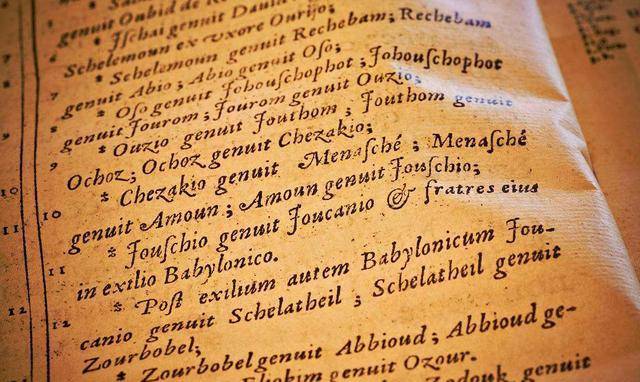 genuit Oubid de
* Jſchai genuit Dauid
6 Schelemoun ex vxore Ourijo;
7 * Schelemoun genuit Rechebam; Rechebam
genuit Abio; Abio genuit Oſo;
* Oſo genuit Johouſchophot; Johouſchophot
genuit Jourom; Jourom genuit Ouzio;
9 * Ouzio genuit Jouthom; Jouthom genuit
Ochoz; Ochoz genuit Chezakio;
10 10 * Chezakio genuit Menaſché; Menaſché
genuit Amoun; Amoun genuit Jouſchio;
11 11 * Jouſchio genuit Joucanio & fratres eius
in extlio Babylonico.
12 12 * Poſt exilium autem Babylonicum Jou-
canio genuit Schelatheil; Schelatheil genuit
Zourbobel;
* Zourbobel genuit Abbioud; Abbioud ge-
Eliokim genuit Ozour.
Zodouk genuit